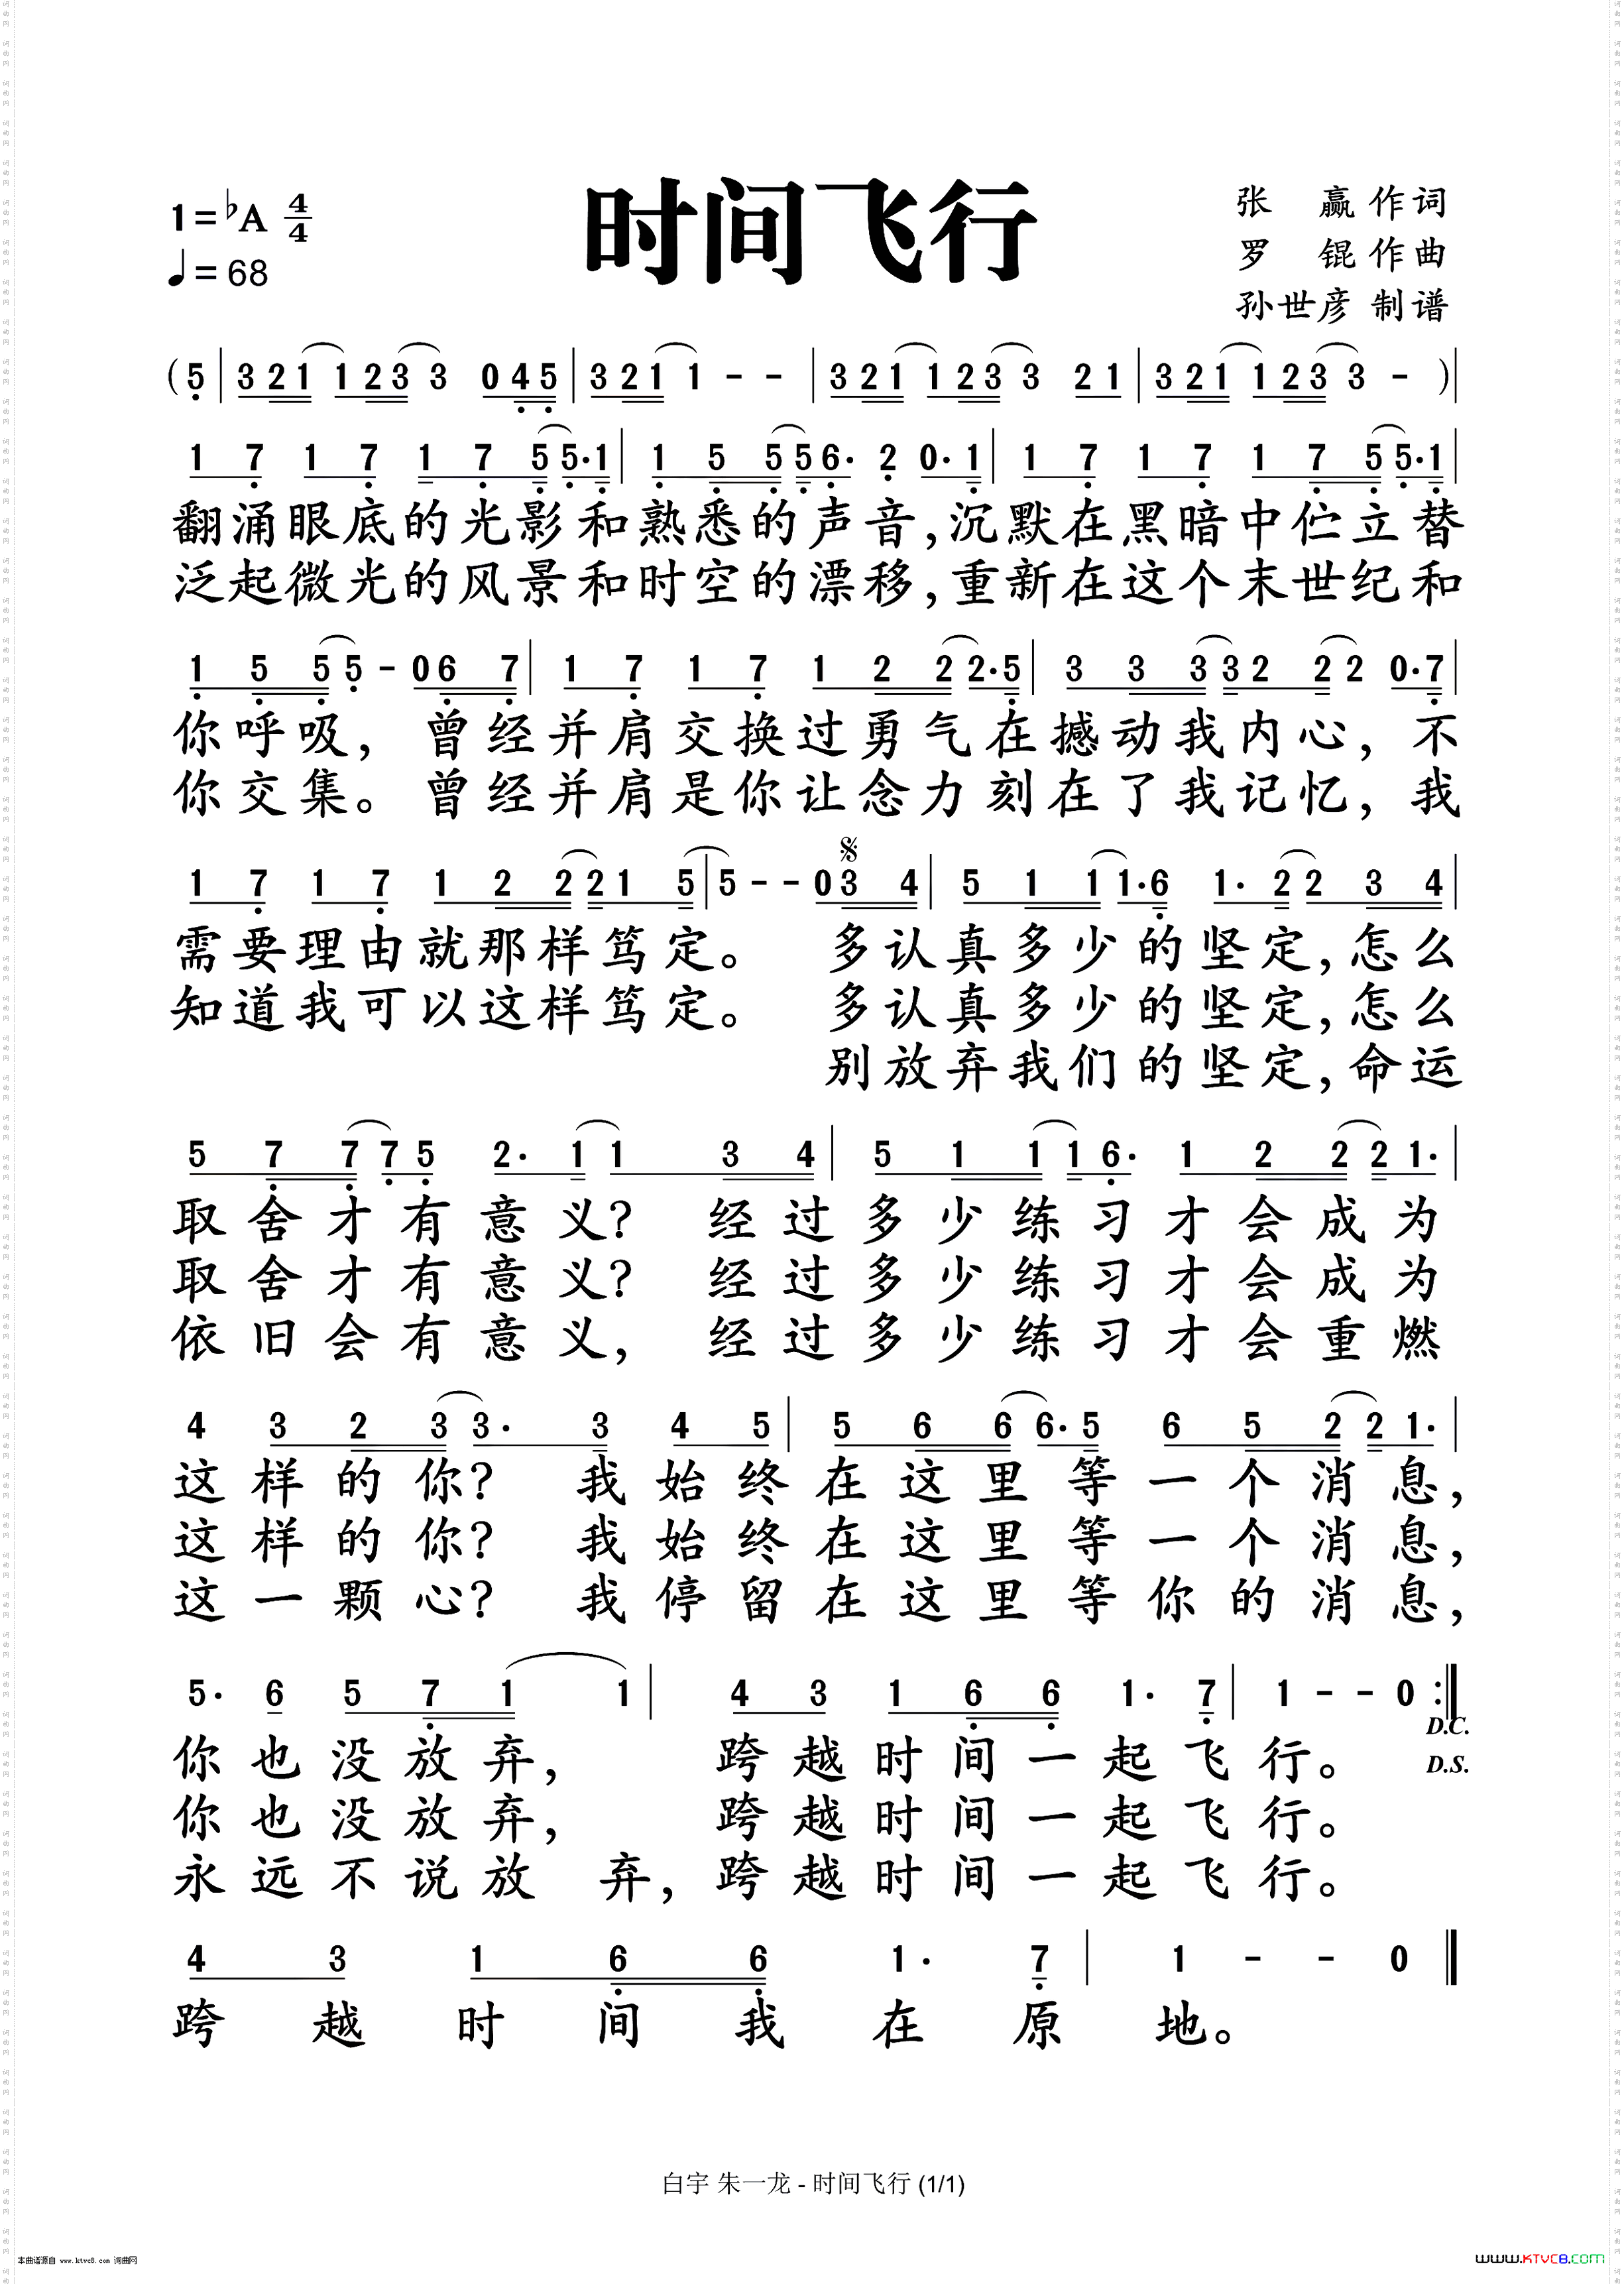 时间飞行
1=♭A 4/4
♩=68
张 赢 作词
罗 锟 作曲
孙世彦 制谱
(5 | 3 2 1 1 2 3 3 0 4 5 | 3 2 1 1 - - | 3 2 1 1 2 3 3 2 1 | 3 2 1 1 2 3 3 - ) |
1 7 1 7 1 7 5 5· 1 | 1 5 5 5 6· 2 0· 1 | 1 7 1 7 1 7 5 5· 1 |
翻涌眼底的光影和熟悉的声音,沉默在黑暗中伫立替
泛起微光的风景和时空的漂移,重新在这个末世纪和
1 5 5 5 - 0 6 7 | 1 7 1 7 1 2 2 2· 5 | 3 3 3 3 2 2 2 0· 7 |
你呼吸,曾经并肩交换过勇气在撼动我内心,不
你交集。曾经并肩是你让念力刻在了我记忆,我
1 7 1 7 1 2 2 2 1 5 | 5 - - 0 3 4 | 5 1 1 1· 6 1· 2 2 3 4 |
需要理由就那样笃定。多认真多少的坚定,怎么
知道我可以这样笃定。多认真多少的坚定,怎么
别放弃我们的坚定,命运
5 7 7 7 5 2· 1 1 3 4 | 5 1 1 1 6· 1 2 2 2 1· |
取舍才有意义?经过多少练习才会成为
取舍才有意义?经过多少练习才会成为
依旧会有意义,经过多少练习才会重燃
4 3 2 3 3· 3 4 5 | 5 6 6 6· 5 6 5 2 2 1· |
这样的你?我始终在这里等一个消息,
这样的你?我始终在这里等一个消息,
这一颗心?我停留在这里等你的消息,
5· 6 5 7 1 1 | 4 3 1 6 6 1· 7 | 1 - - 0 :|
D.C.
D.S.
你也没放弃,跨越时间一起飞行。
你也没放弃,跨越时间一起飞行。
永远不说放弃,跨越时间一起飞行。
4 3 1 6 6 1· 7 | 1 - - 0 ||
跨越时间我在原地。
白宇 朱一龙 - 时间飞行 (1/1)
本曲谱源自 www.ktvc8.com 词曲网
www.KTVC8.com